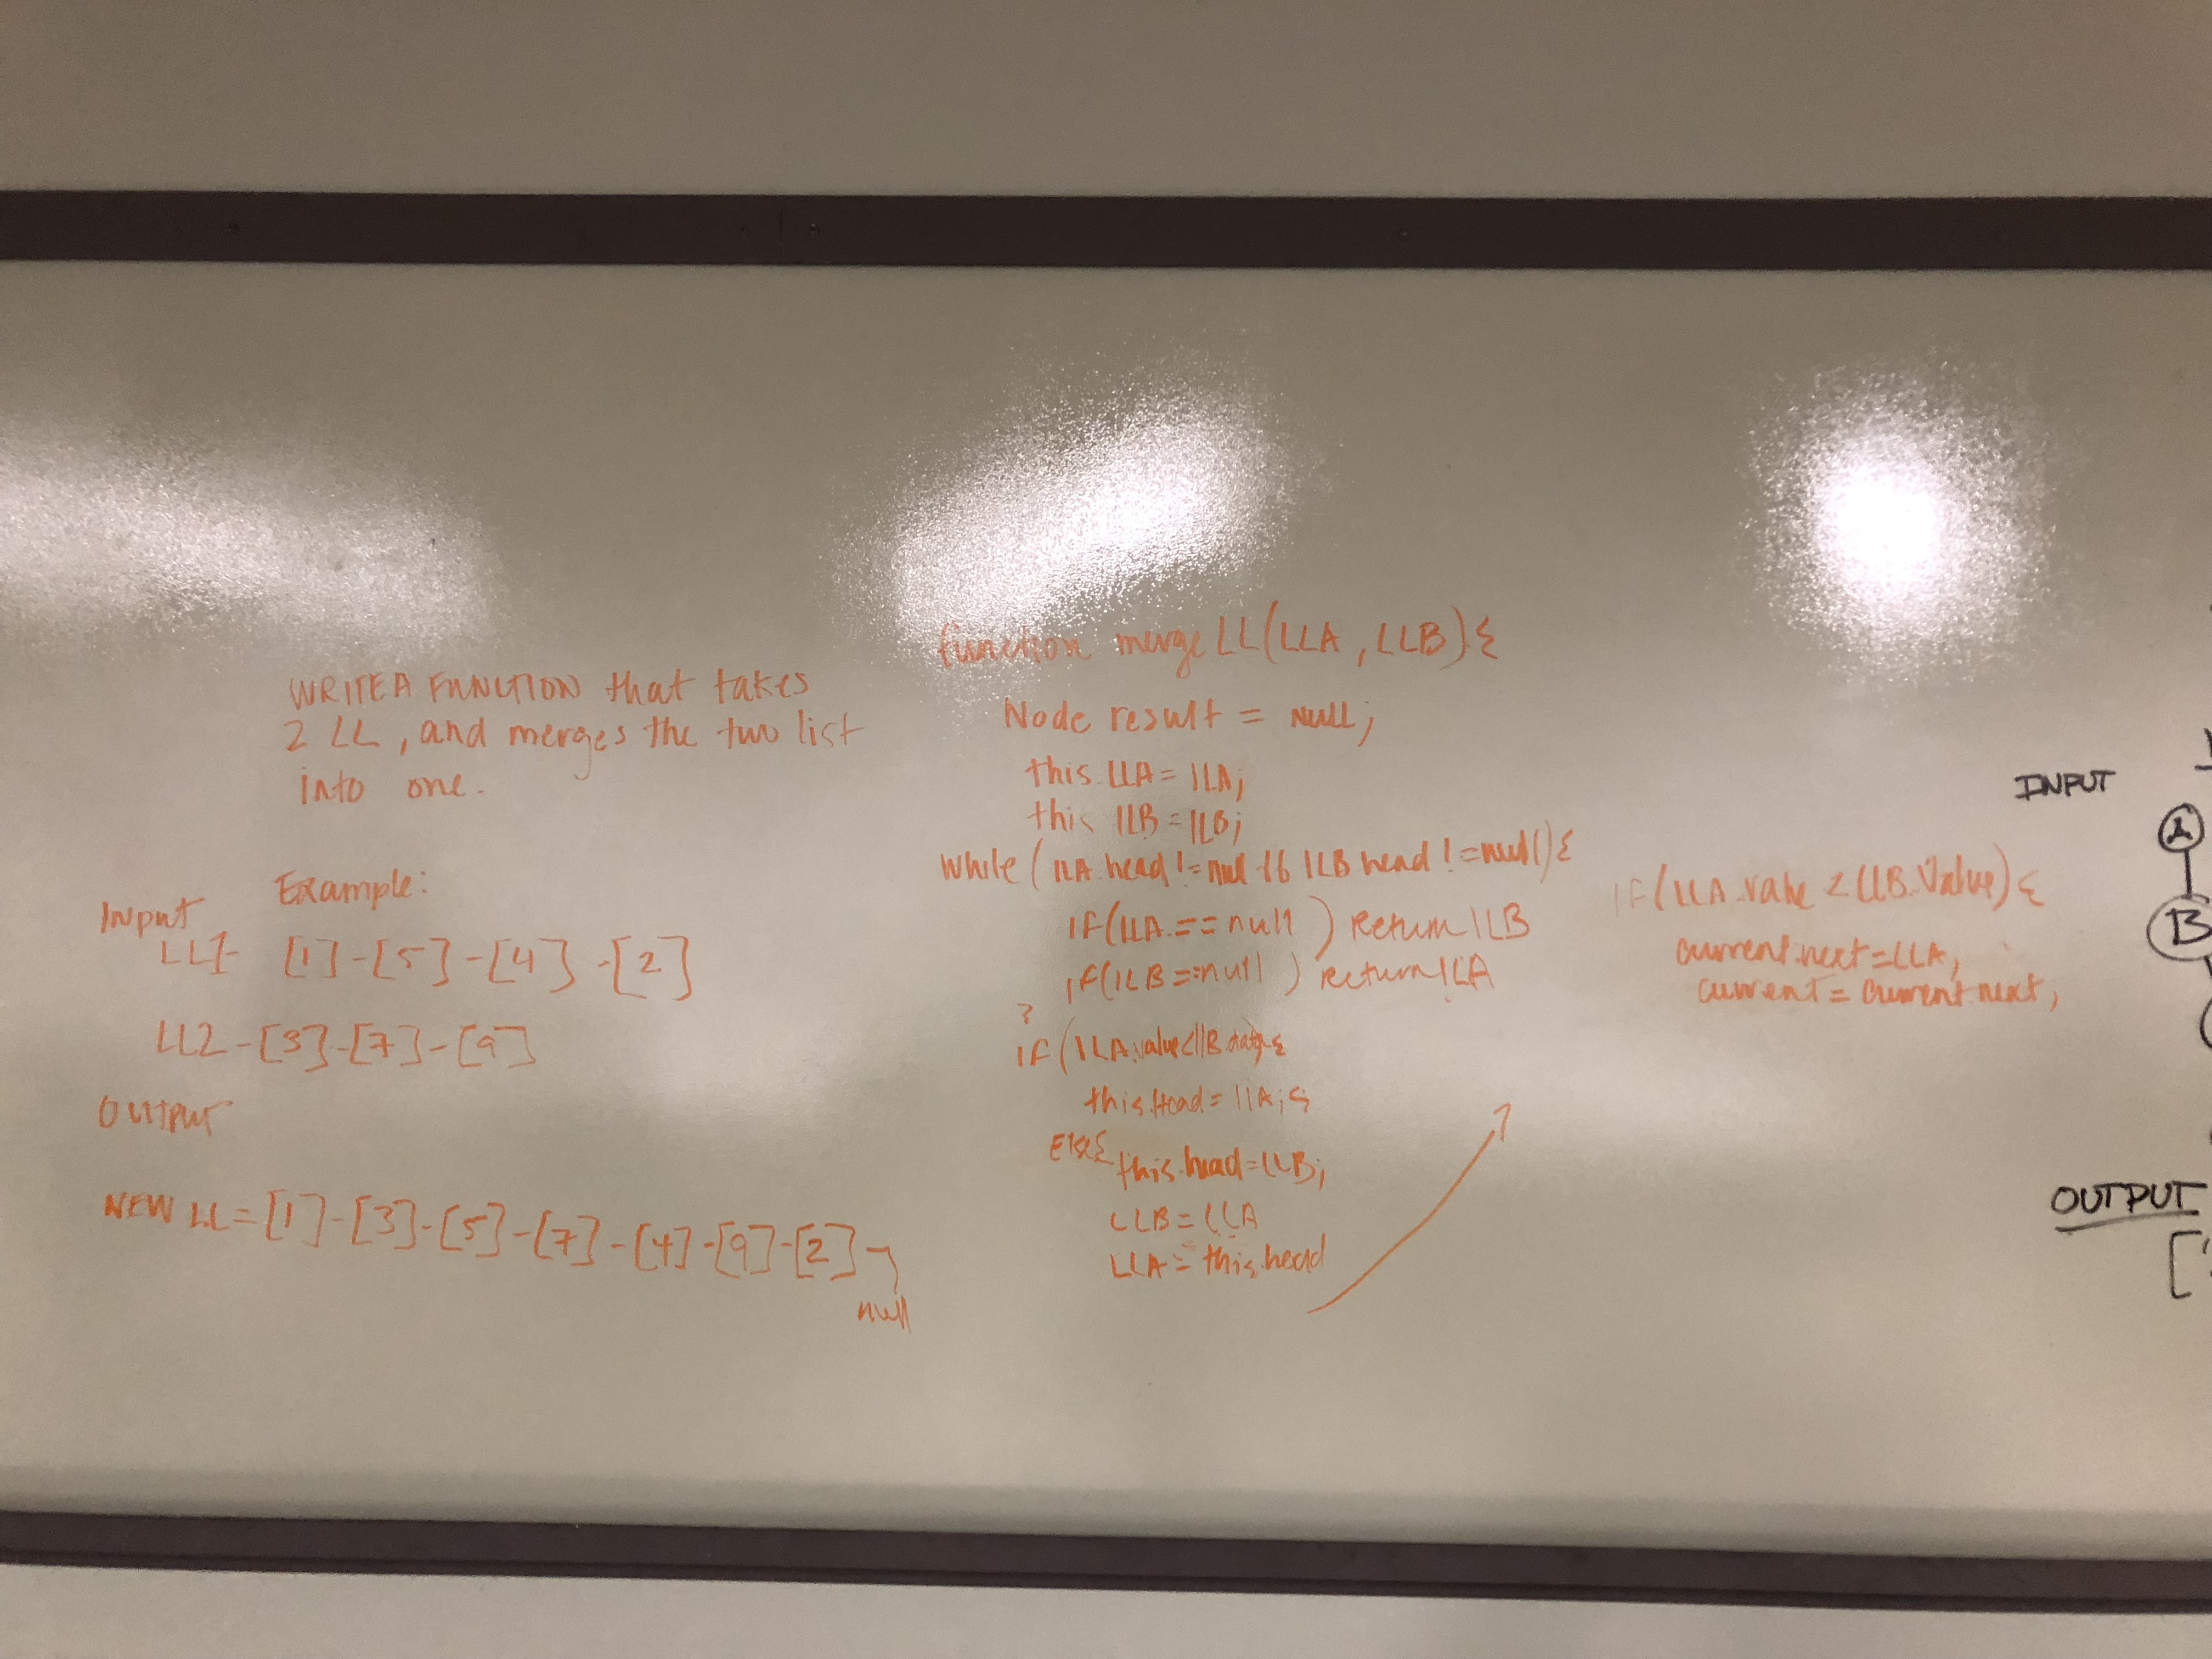 WRITE A FUNCTION that takes
2 LL, and merges the two list
into one.
Example:
Input
LL1- [1]-[5]-[4]-[2]
LL2-[3]-[7]-[9]
Output
NEW LL=[1]-[3]-[5]-[7]-[4]-[9]-[2]
null
function mergeLL(LLA, LLB){
Node result = Null;
this.LLA = LLA;
this LLB = LLB;
while (LLA.head != null && LLB head != null){
if(LLA == null ) Return LLB
if(LLB == null ) return LLA
}
if(LLA.value<LLB.data){
this.Head = LLA;
Else{ this.head=LLB;
LLB=LLA
LLA = this.head
if(LLA.value < LLB.Value){
current.next=LLA;
current = current.next;
INPUT
A
B
OUTPUT
[